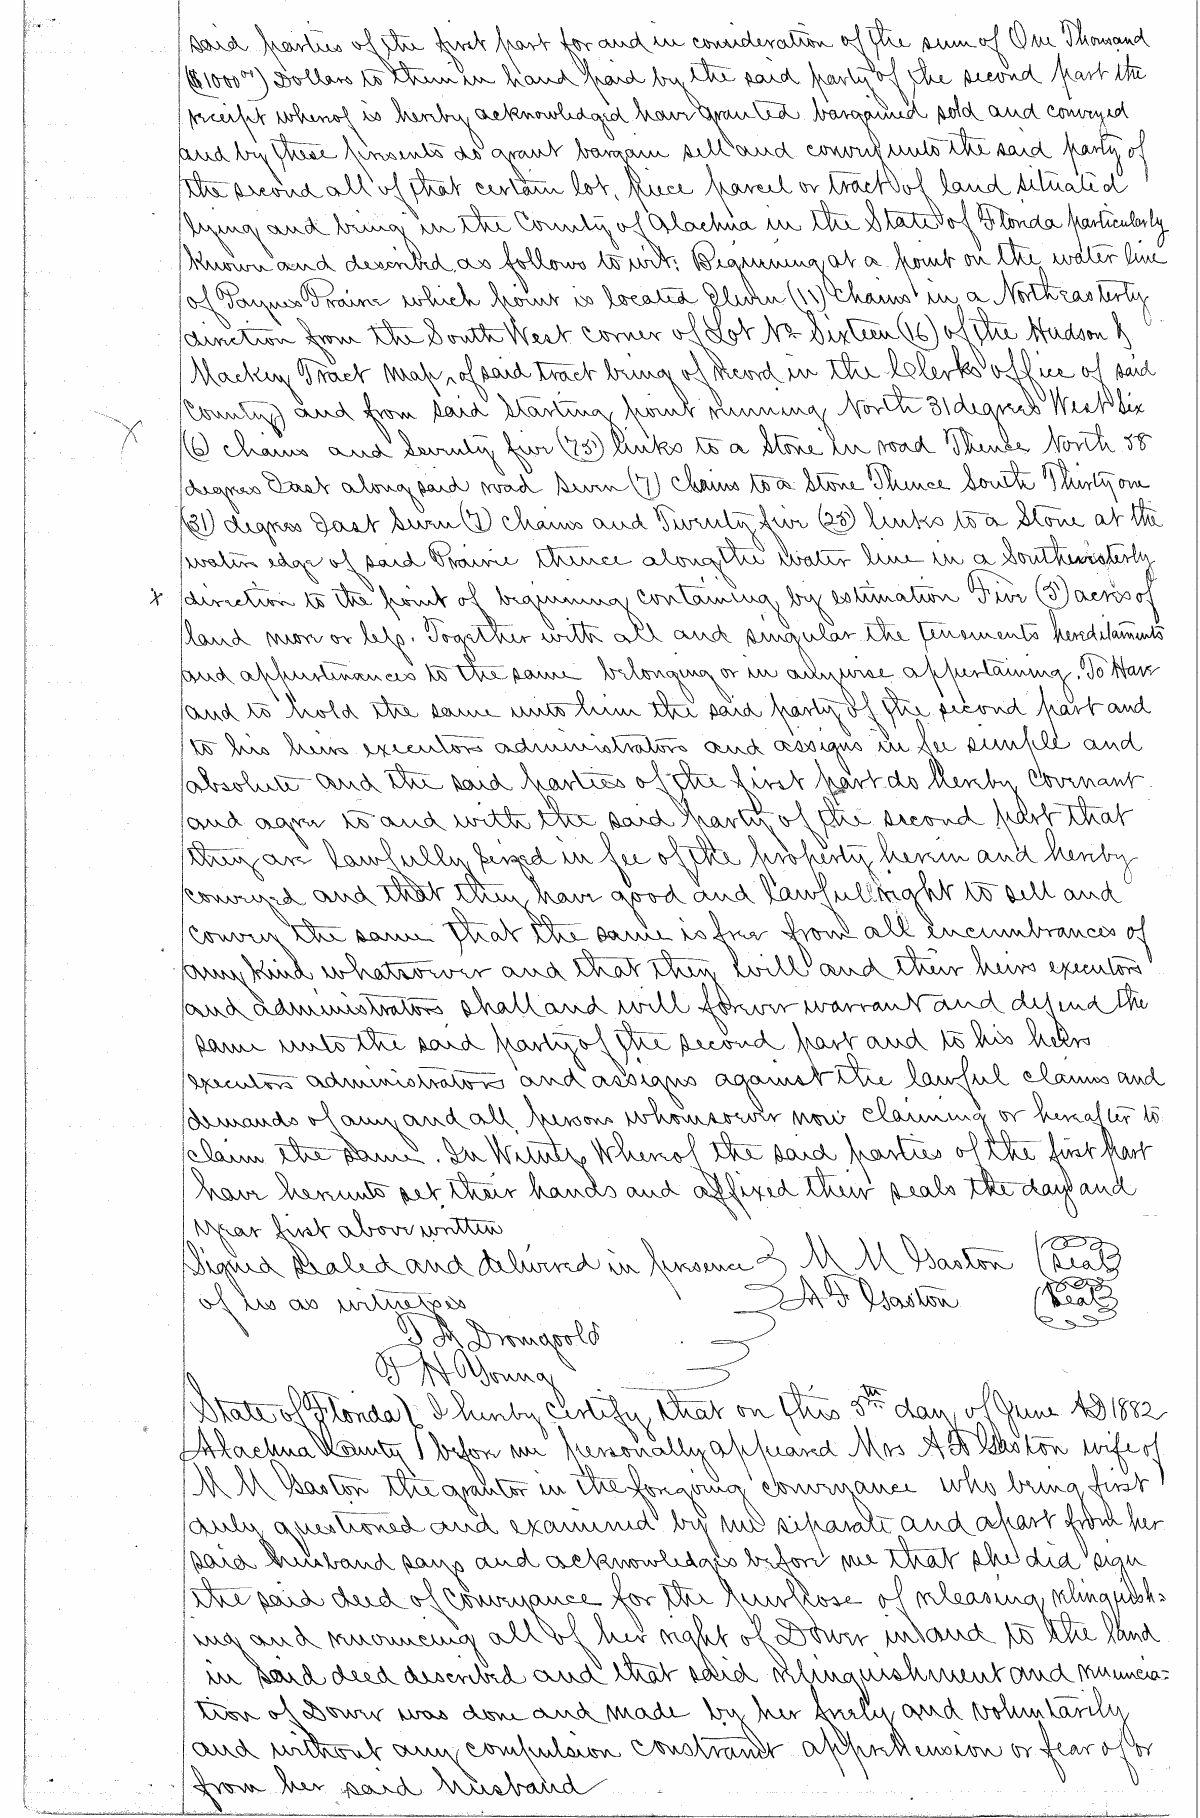 said parties of the first part for and in consideration of the sum of One Thousand
($1000 00) Dollars to them in hand paid by the said party of the second part the
receipt whereof is hereby acknowledged have granted bargained sold and conveyed
and by these presents do grant bargain sell and convey unto the said party of
the second all of that certain lot, piece parcel or tract of land situated
lying and being in the County of Alachua in the State of Florida particularly
known and described as follows to wit: Beginning at a point on the water line
of Paynes Prairie which point is located Eleven (11) Chains in a Northeasterly
direction from the South West corner of Lot No Sixteen (16) of the Hudson &
Mackey Tract Map, of said tract being of record in the Clerks office of said
County) and from said Starting point running North 31 degrees West Six
(6) chains and Seventy five (75) links to a Stone in road Thence North 58
degrees East along said road seven (7) Chains to a Stone Thence South Thirty one
(31) degrees East Seven (7) Chains and Twenty five (25) links to a Stone at the
waters edge of said Prairie thence along the water line in a Southwesterly
x direction to the point of beginning containing by estimation Five (5) acres of
land more or less. Together with all and singular the tenements hereditaments
and appurtenances to the same belonging or in anywise appertaining. To Have
and to hold the same unto him the said party of the second part and
to his heirs executors administrators and assigns in fee simple and
absolute and the said parties of the first part do hereby Covenant
and agree to and with the said party of the second part that
they are lawfully seized in fee of the property herein and hereby
conveyed and that they have good and lawful right to sell and
convey the same that the same is free from all encumbrances of
any kind whatsoever and that they will and their heirs executors
and administrators shall and will forever warrant and defend the
same unto the said party of the second part and to his heirs
executors administrators and assigns against the lawful claims and
demands of any and all persons whomsoever now claiming or hereafter to
claim the same. In Witness Whereof the said parties of the first part
have hereunto set their hands and affixed their seals the day and
year first above written
Signed sealed and delivered in presence M M Gaston (Seal)
of us as witnesses A F Gaston (Seal)
Dromgoole
Young
State of Florida } I hereby certify that on this 5th day of June AD 1882
Alachua County } before me personally appeared Mrs A F Gaston wife of
M M Gaston the grantor in the foregoing conveyance who being first
duly questioned and examined by me separate and apart from her
said husband says and acknowledges before me that she did sign
the said deed of Conveyance for the purpose of releasing relinquish-
ing and renouncing all of her right of Dower in and to the land
in said deed described and that said relinquishment and renuncia-
tion of Dower was done and made by her freely and voluntarily
and without any compulsion constraint apprehension or fear of or
from her said husband